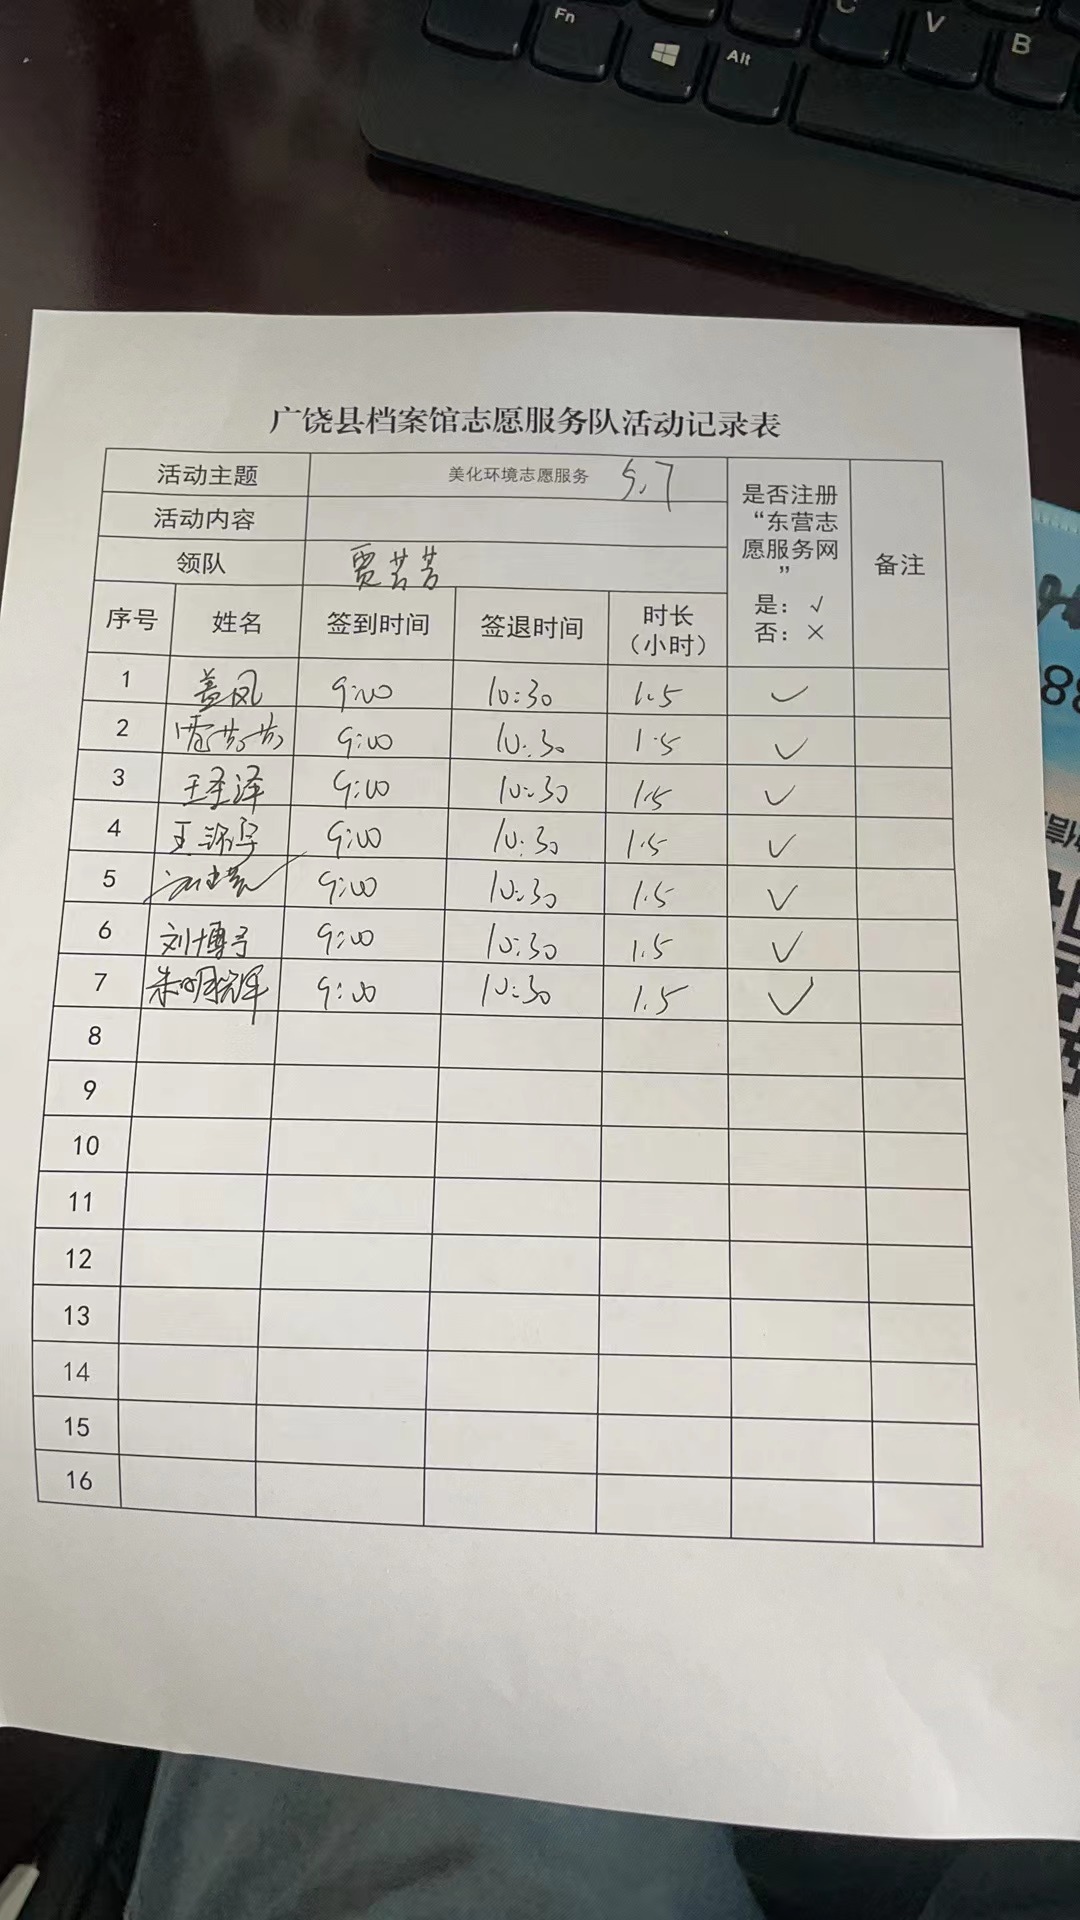 Fn
Alt
C
V
B
广饶县档案馆志愿服务队活动记录表
活动主题 美化环境志愿服务 5.7
是否注册“东营志愿服务网” 是：√ 否：×
备注
活动内容
领队 贾芸芸
序号 姓名 签到时间 签退时间 时长（小时）
1 盖凤 9:00 10:30 1.5 ✓
2 9:00 10:30 1.5 ✓
3 王圣泽 9:00 10:30 1.5 ✓
4 王 9:00 10:30 1.5 ✓
5 9:00 10:30 1.5 ✓
6 刘博 9:00 10:30 1.5 ✓
7 朱明 9:00 10:30 1.5 ✓
8
9
10
11
12
13
14
15
16